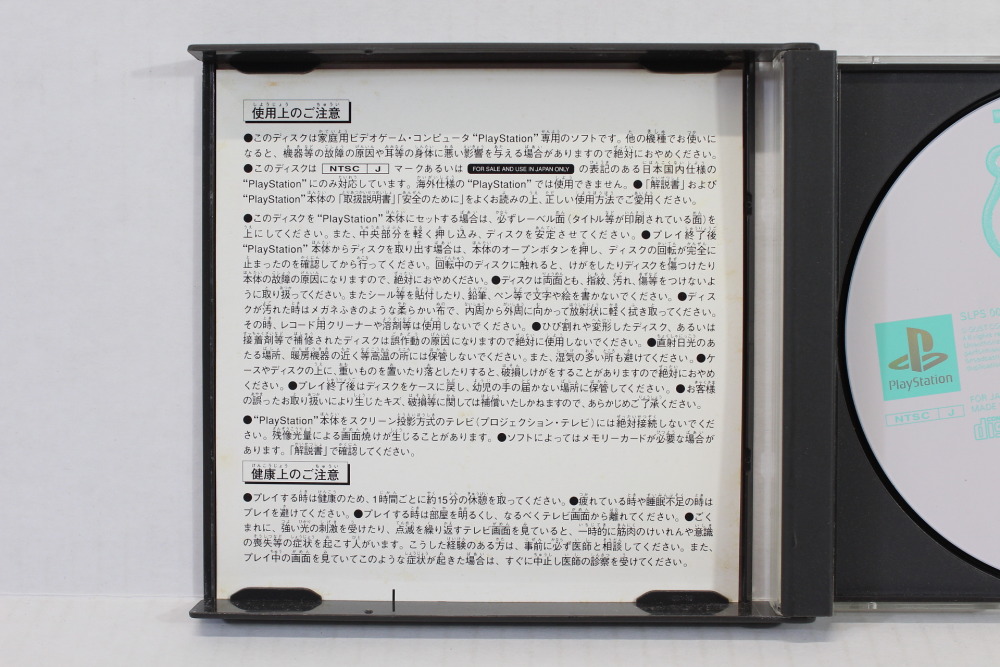 使用上のご注意
●このディスクは家庭用ビデオゲーム・コンピュータ“PlayStation”専用のソフトです。他の機種でお使いに
なると、機器等の故障の原因や耳等の身体に悪い影響を与える場合がありますので絶対におやめください。
●このディスクは NTSC J マークあるいは FOR SALE AND USE IN JAPAN ONLY の表記のある日本国内仕様の
“PlayStation”にのみ対応しています。海外仕様の“PlayStation”では使用できません。●「解説書」および
“PlayStation”本体の「取扱説明書」「安全のために」をよくお読みの上、正しい使用方法でご愛用ください。
●このディスクを“PlayStation”本体にセットする場合は、必ずレーベル面(タイトル等が印刷されている面)を
上にしてください。また、中央部分を軽く押し込み、ディスクを安定させてください。●プレイ終了後
“PlayStation”本体からディスクを取り出す場合は、本体のオープンボタンを押し、ディスクの回転が完全に
止まったのを確認してから行ってください。回転中のディスクに触れると、けがをしたりディスクを傷つけたり
本体の故障の原因になりますので、絶対におやめください。●ディスクは両面とも、指紋、汚れ、傷等をつけないよ
うに取り扱ってください。またシール等を貼付したり、鉛筆、ペン等で文字や絵を書かないでください。●ディス
クが汚れた時はメガネふきのような柔らかい布で、内周から外周に向かって放射状に軽く拭き取ってください。
その時、レコード用クリーナーや溶剤等は使用しないでください。●ひび割れや変形したディスク、あるいは
接着剤等で補修されたディスクは誤作動の原因になりますので絶対に使用しないでください。●直射日光のあ
たる場所、暖房機器の近く等高温の所には保管しないでください。また、湿気の多い所も避けてください。●ケ
ースやディスクの上に、重いものを置いたり落としたりすると、破損しけがをすることがありますので絶対におやめ
ください。●プレイ終了後はディスクをケースに戻し、幼児の手の届かない場所に保管してください。●お客様
の誤ったお取り扱いにより生じたキズ、破損等に関しては補償いたしかねますので、あらかじめご了承ください。
●“PlayStation”本体をスクリーン投影方式のテレビ(プロジェクション・テレビ)には絶対接続しないでくだ
さい。残像光量による画面焼けが生じることがあります。●ソフトによってはメモリーカードが必要な場合が
あります。「解説書」で確認してください。
健康上のご注意
●プレイする時は健康のため、1時間ごとに約15分の休憩を取ってください。●疲れている時や睡眠不足の時は
プレイを避けてください。●プレイする時は部屋を明るくし、なるべくテレビ画面から離れてください。●ごく
まれに、強い光の刺激を受けたり、点滅を繰り返すテレビ画面を見ていると、一時的に筋肉のけいれんや意識
の喪失等の症状を起こす人がいます。こうした経験のある方は、事前に必ず医師と相談してください。また、
プレイ中の画面を見ていてこのような症状が起きた場合は、すぐに中止し医師の診察を受けてください。
SLPS
PlayStation
NTSC J
FOR JA
MADE